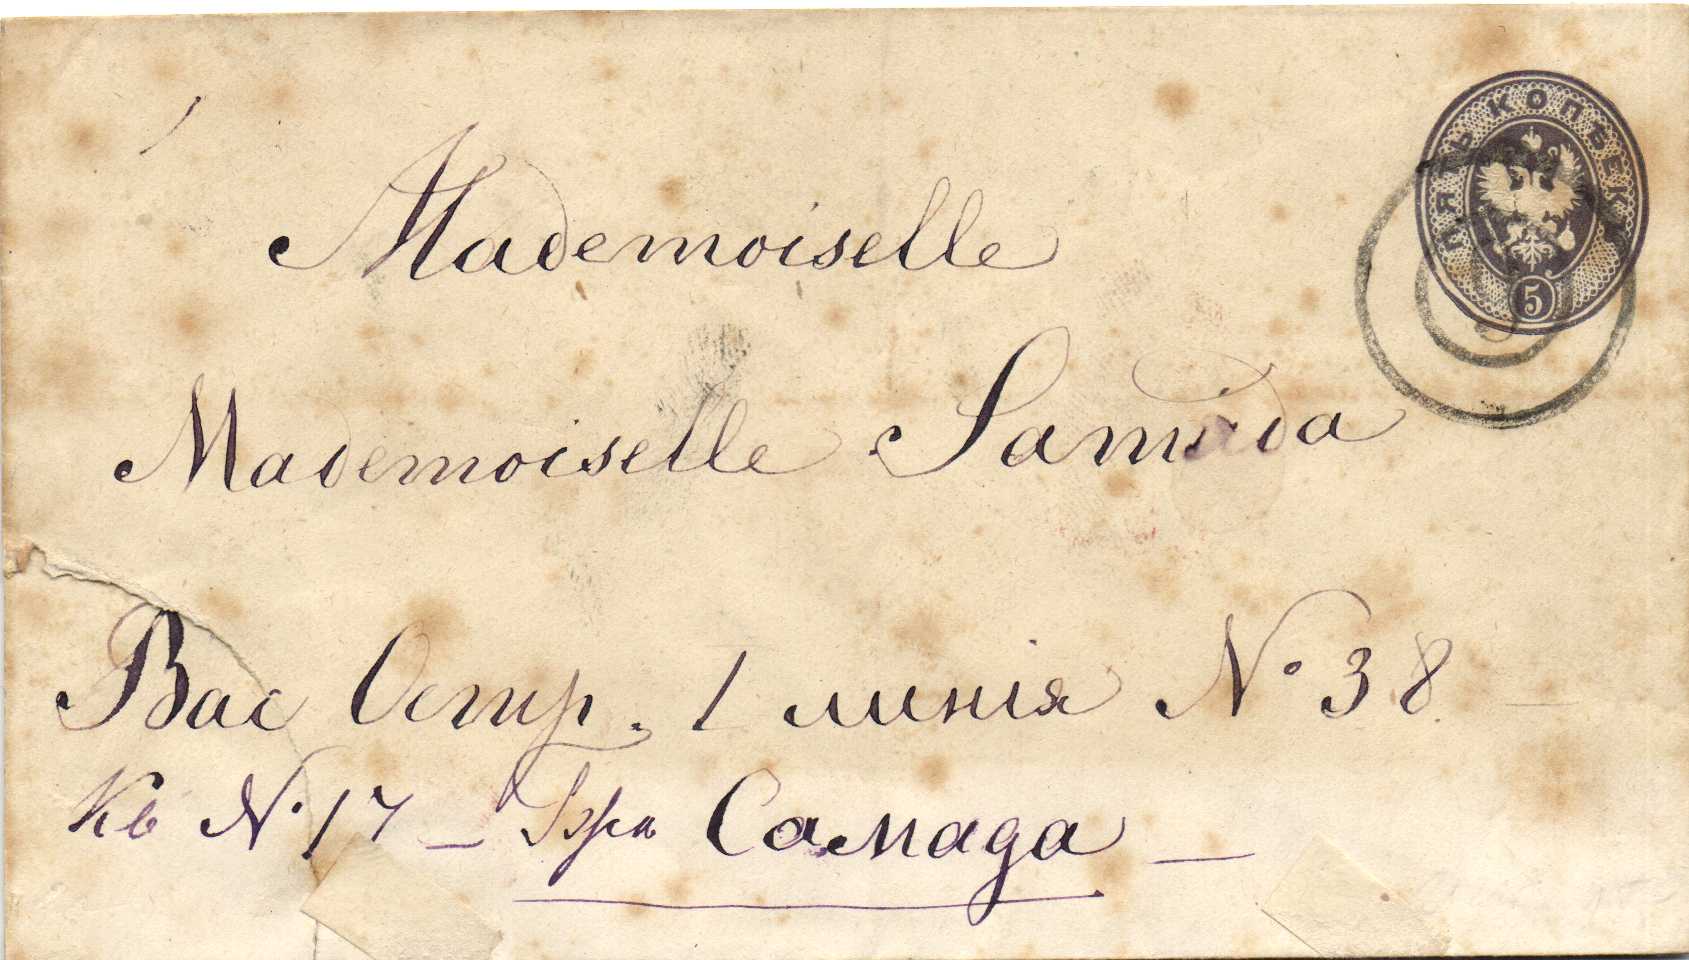 ПЯТЬ КОПѢЕКЪ
5
Mademoiselle
Mademoiselle Samada
Вас Остр. 1 линія № 38
Кв № 17 — Самада —